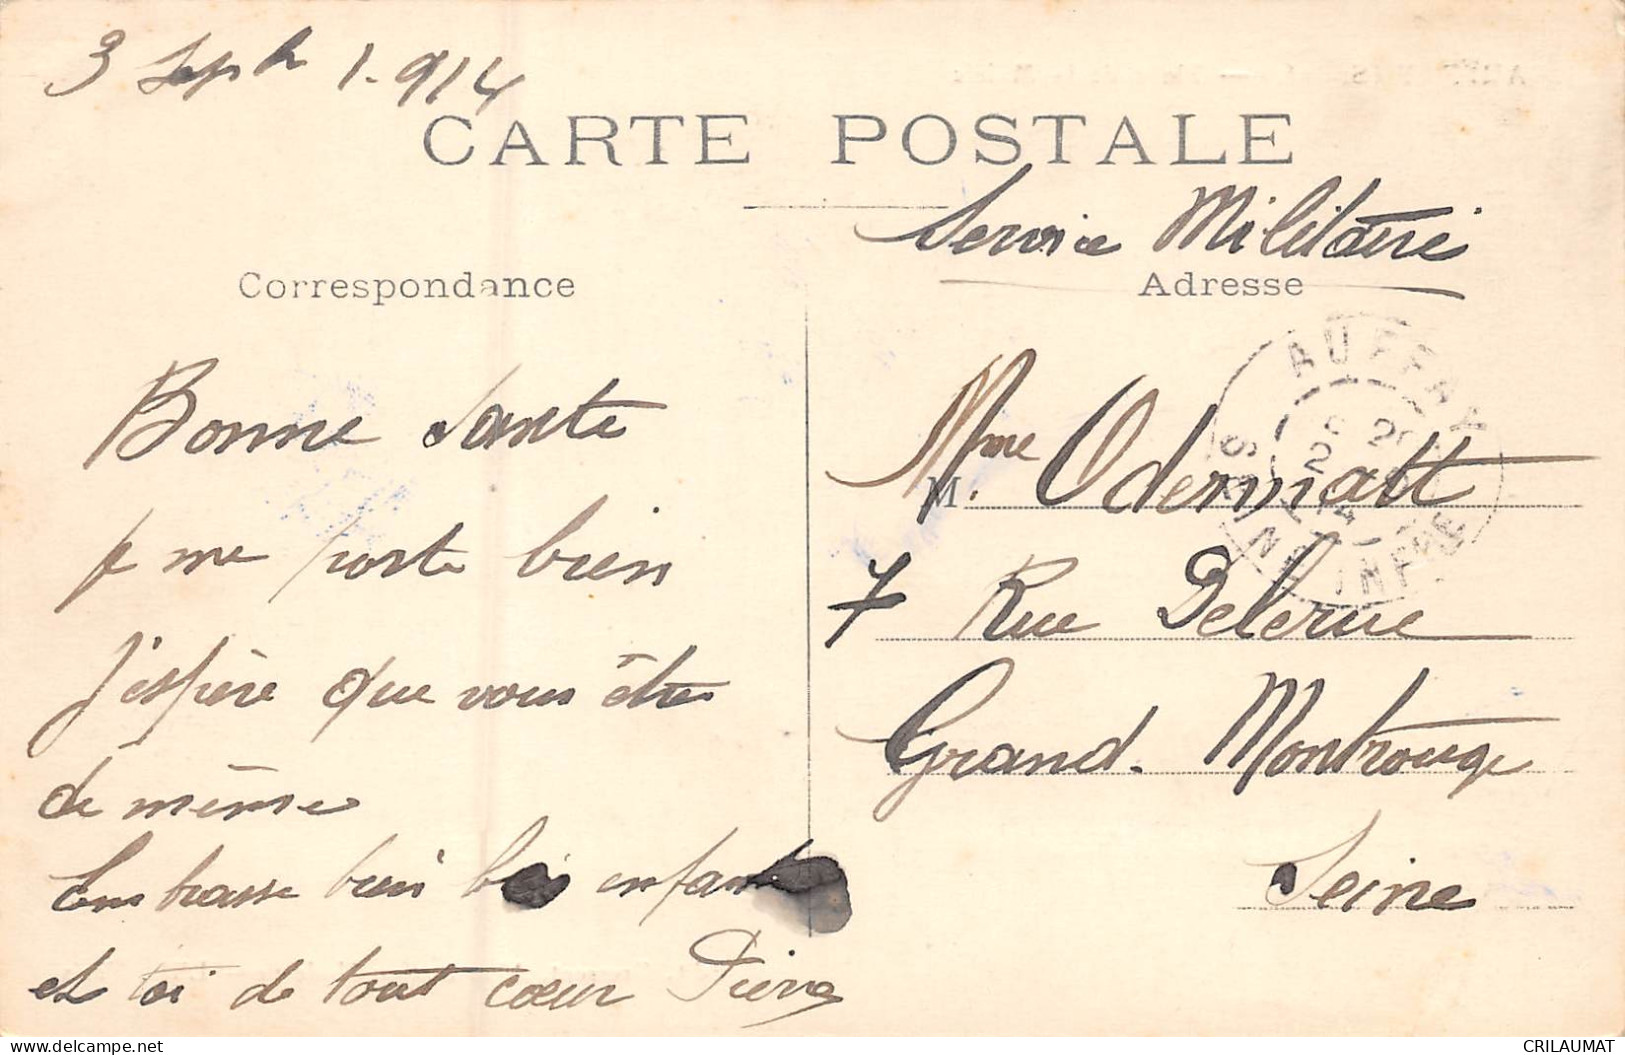 3 Sept 1.914
CARTE POSTALE
Service Militaire
Correspondance
Adresse
Bonne Sante
je me porte bien
J'espère que vous êtes
de même
Embrasse bien les enfants
et toi de tout cœur Pierre
M. Mme Odermatt
7 Rue Delerue
Grand. Montrouge
Seine
AUFFAY
SEINE INFRE
CRILAUMAT